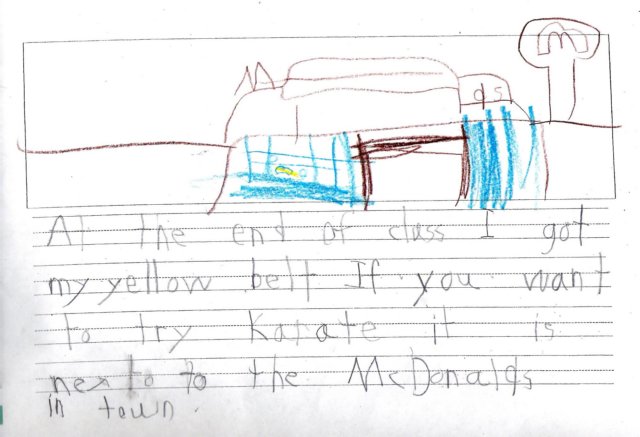 M
M ds
At the end of class I got
my yellow belt If you want
to try Karate it is
nexto to the McDonalds
in town.